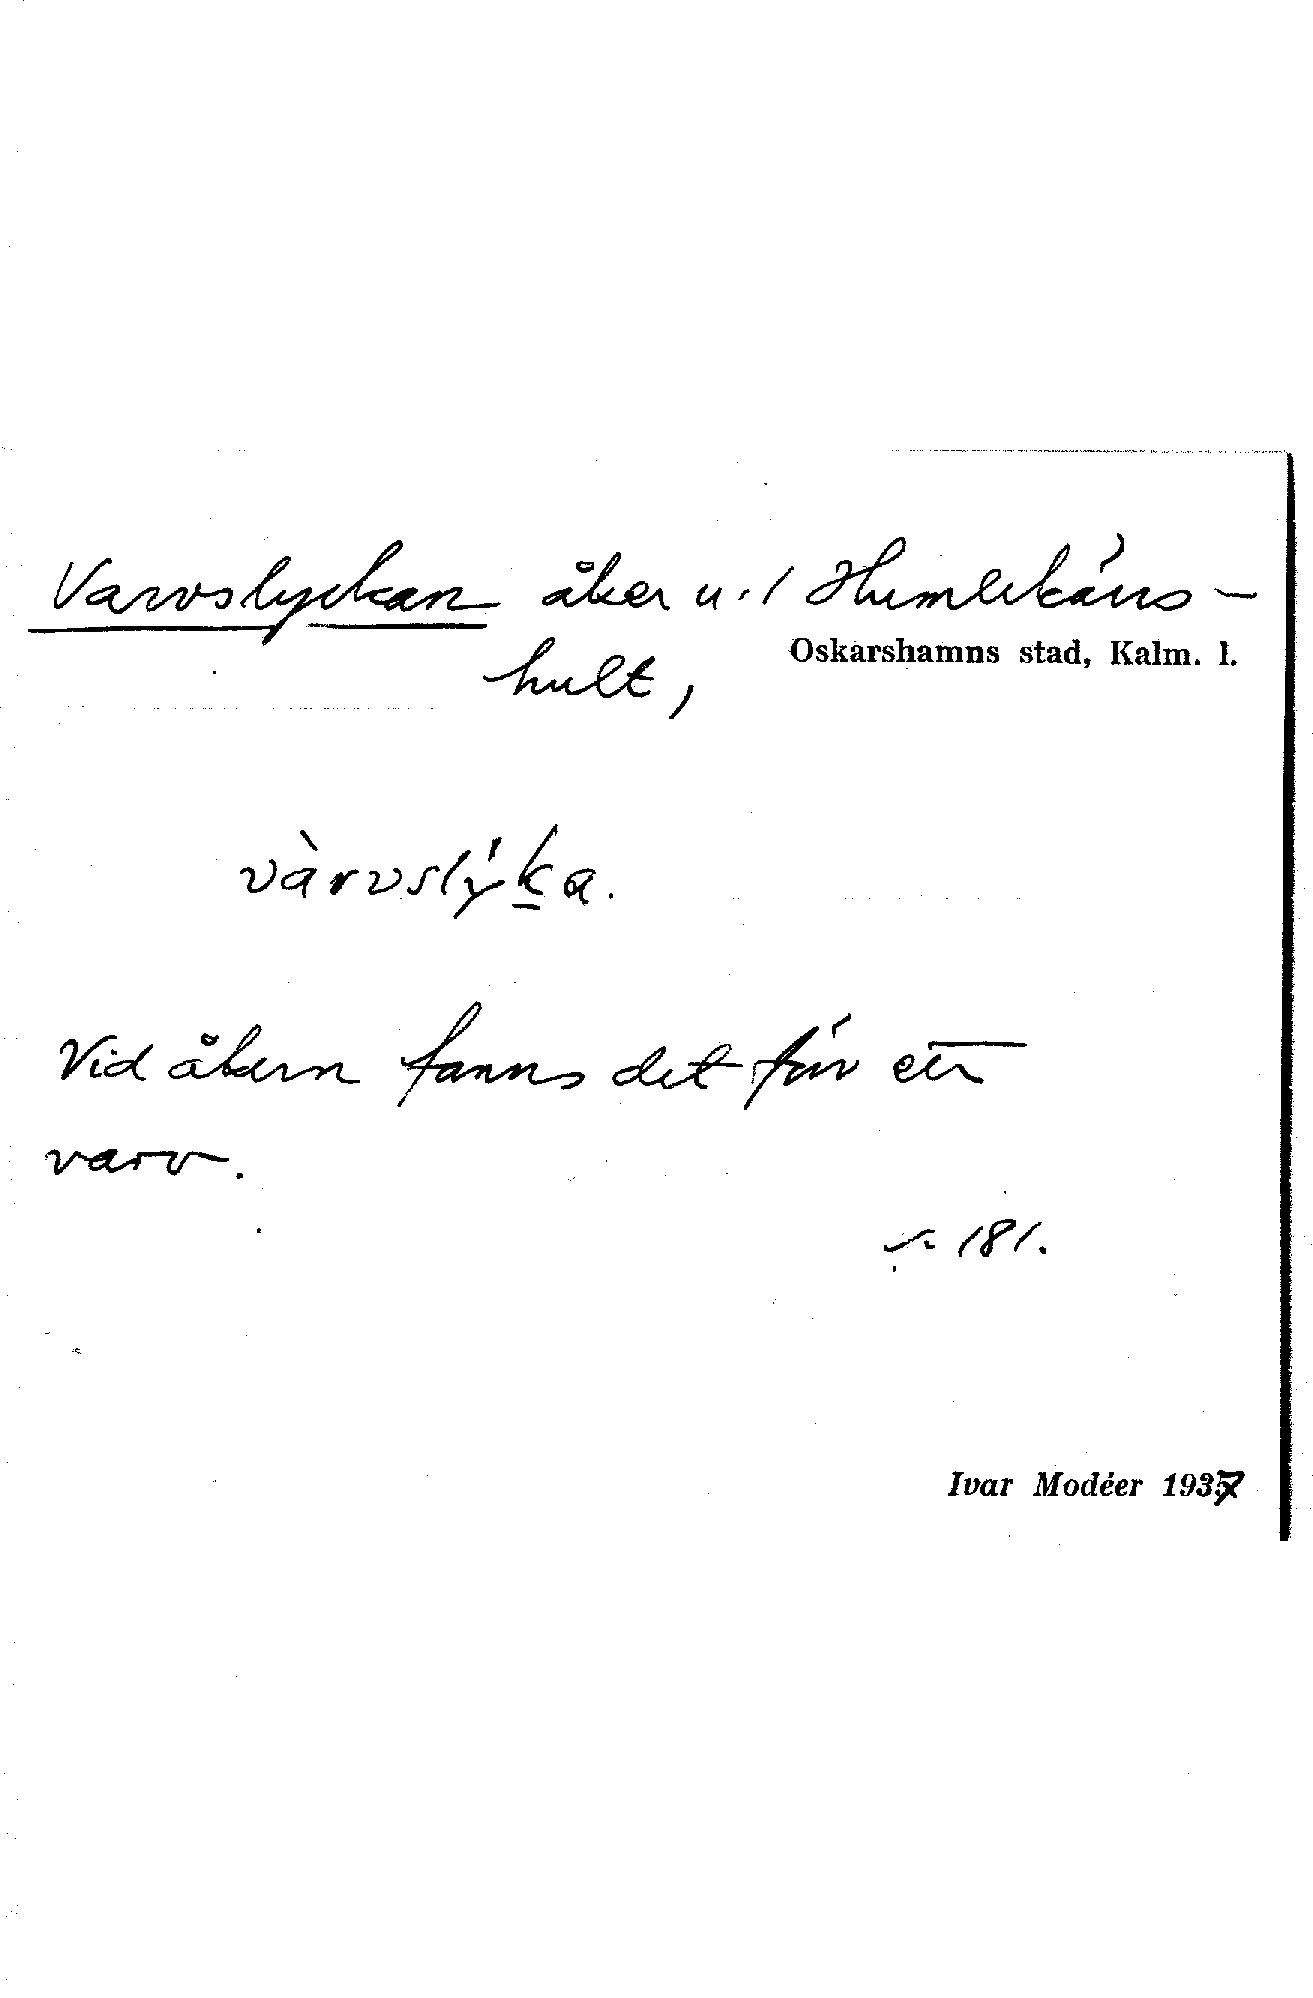 Varvslyckan åker u. l Humlekärrs-
Oskarshamns stad, Kalm. l.
hult,
vàrvslýka.
Vid åkern fanns det förr ett
varv.
181.
Ivar Modéer 1937